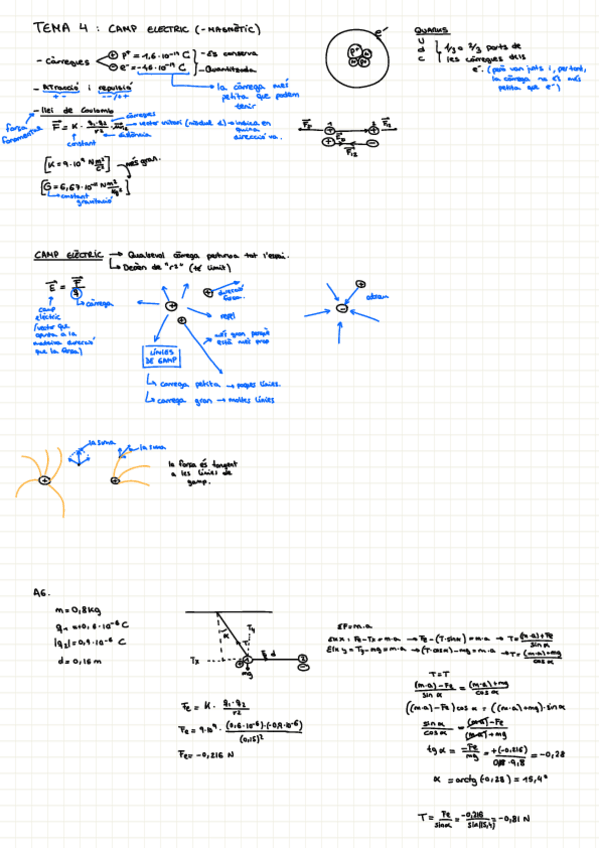 TEMA 4 : CAMP ELÈCTRIC (-MAGNÈTIC)
- Càrregues
p⁺ = 1,6·10⁻¹⁹ C
e⁻ = -1,6·10⁻¹⁹ C
- Es conserva
- Quantitzada
la càrrega més
petita que podem
tenir
- Atracció i repulsió
+ -
--/++
- Llei de Coulomb
força
fonamental
càrregues
vector unitari (mòdul 1) → indica en
quina
direcció va.
distància
constant
[K = 9·10⁹ N m²/C²]
més gran.
[G = 6,67·10⁻¹¹ N m²/kg²]
constant
gravitació
e⁻
p⁺
QUARKS
U
d
c
1/3 o 2/3 parts de
les càrregues dels
e⁻. (però van junts i, per tant,
la càrrega no és més
petita que e⁻)
CAMP ELÈCTRIC → Qualsevol càrrega pertorba tot l'espai.
→ Decreix de "r²" (té límit)
E = F/q
càrrega
camp
elèctric
(vector que
apunta a la
mateixa direcció
que la força)
direcció
força.
repel
més gran perquè
està més prop
LÍNIES
DE CAMP
→ càrrega petita → poques línies.
→ càrrega gran → moltes línies
atrau
la suma
la suma
la força és tangent
a les línies de
camp.
A6.
m = 0,8 kg
q₁ = +0,6·10⁻⁶ C
|q₂| = 0,9·10⁻⁶ C
d = 0,15 m
Ty
T
α
Tx
mg
d
Fe = K · q₁·q₂/r²
Fe = 9·10⁹ · (0,6·10⁻⁶)·(-0,9·10⁻⁶)/(0,15)²
Fe = -0,216 N
ΣF = m·a
Eix x : Fe - Tx = m·a → Fe - (T·sinα) = m·a → T = (m·a)+Fe/sin α
Eix y = Ty - mg = m·a → (T·cosα) - mg = m·a → T = (m·a)+mg/cos α
T = T
(m·a) - Fe/sin α = (m·a)+mg/cos α
((m·a) - Fe) cos α = ((m·a)+mg)·sin α
sin α/cos α = (m·a) - Fe/(m·a)+mg
tg α = -Fe/mg = +(-0,216)/0,8·9,8 = -0,28
α = arctg (-0,28) = 15,4°
T = Fe/sin α = -0,216/sin(15,4) = -0,81 N